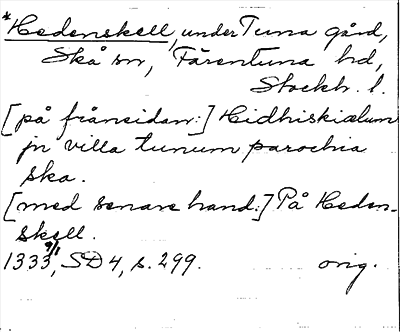 *Hedenskell, under Tuna gård,
Skå sn, Färentuna hd,
Stockh. l.
[på frånsidan:] Hidhiskialum
jn villa tunum parochia
ska.
[med senare hand:] På Heden-
skell.
1333 9/1, SD 4, s. 299. orig.